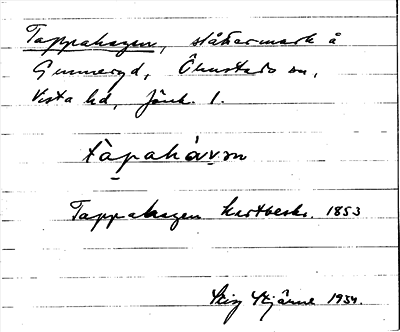 Tappahagen, slåttermark å
Gunneryd, Ölmstads sn,
Vista hd, Jönk. l.
Tappahagen kartbeskr. 1853
Stig Stjärne 1934.